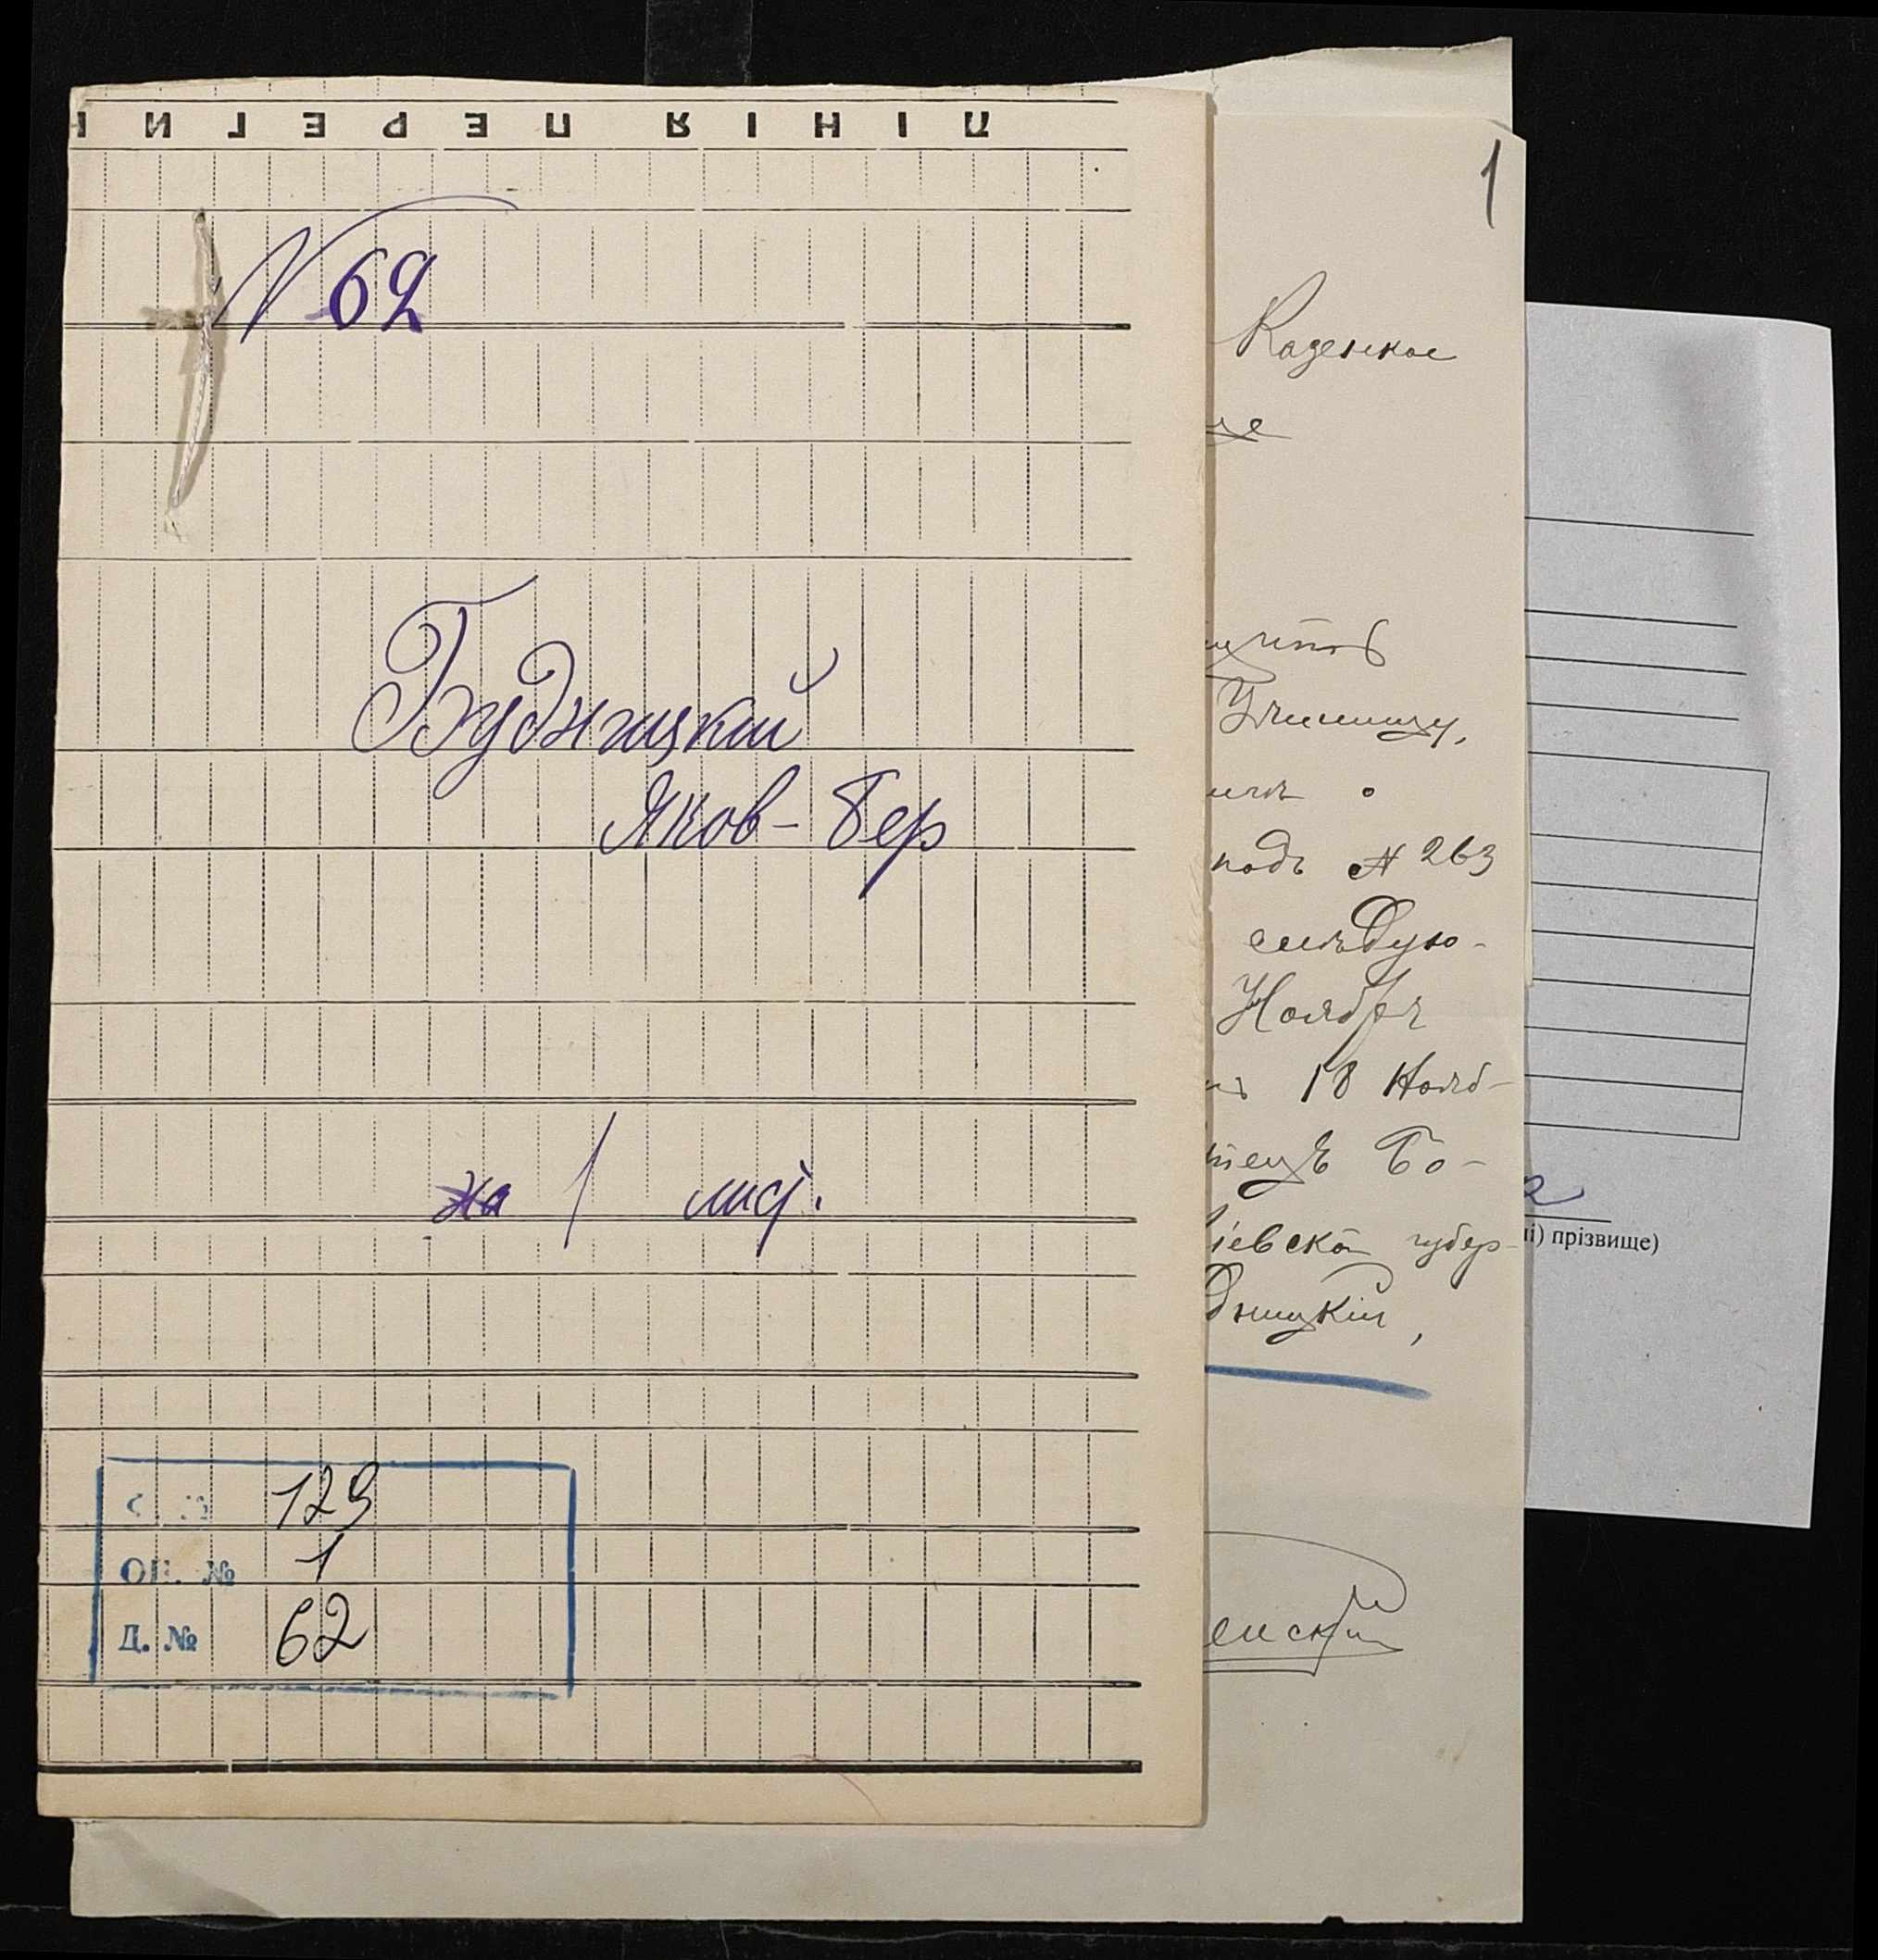 ЛІНІЯ ПЕРЕГИН
N 62
Будницкий
Яков-Бер
на 1 лист.
129
ОП. № 1
Д. № 62
1
Казенное
Училищу,
подъ № 263
слѣдую-
Ноября
18 Нояб-
Бо-
іевской губер-
дницкій,
енский
і) прізвище)